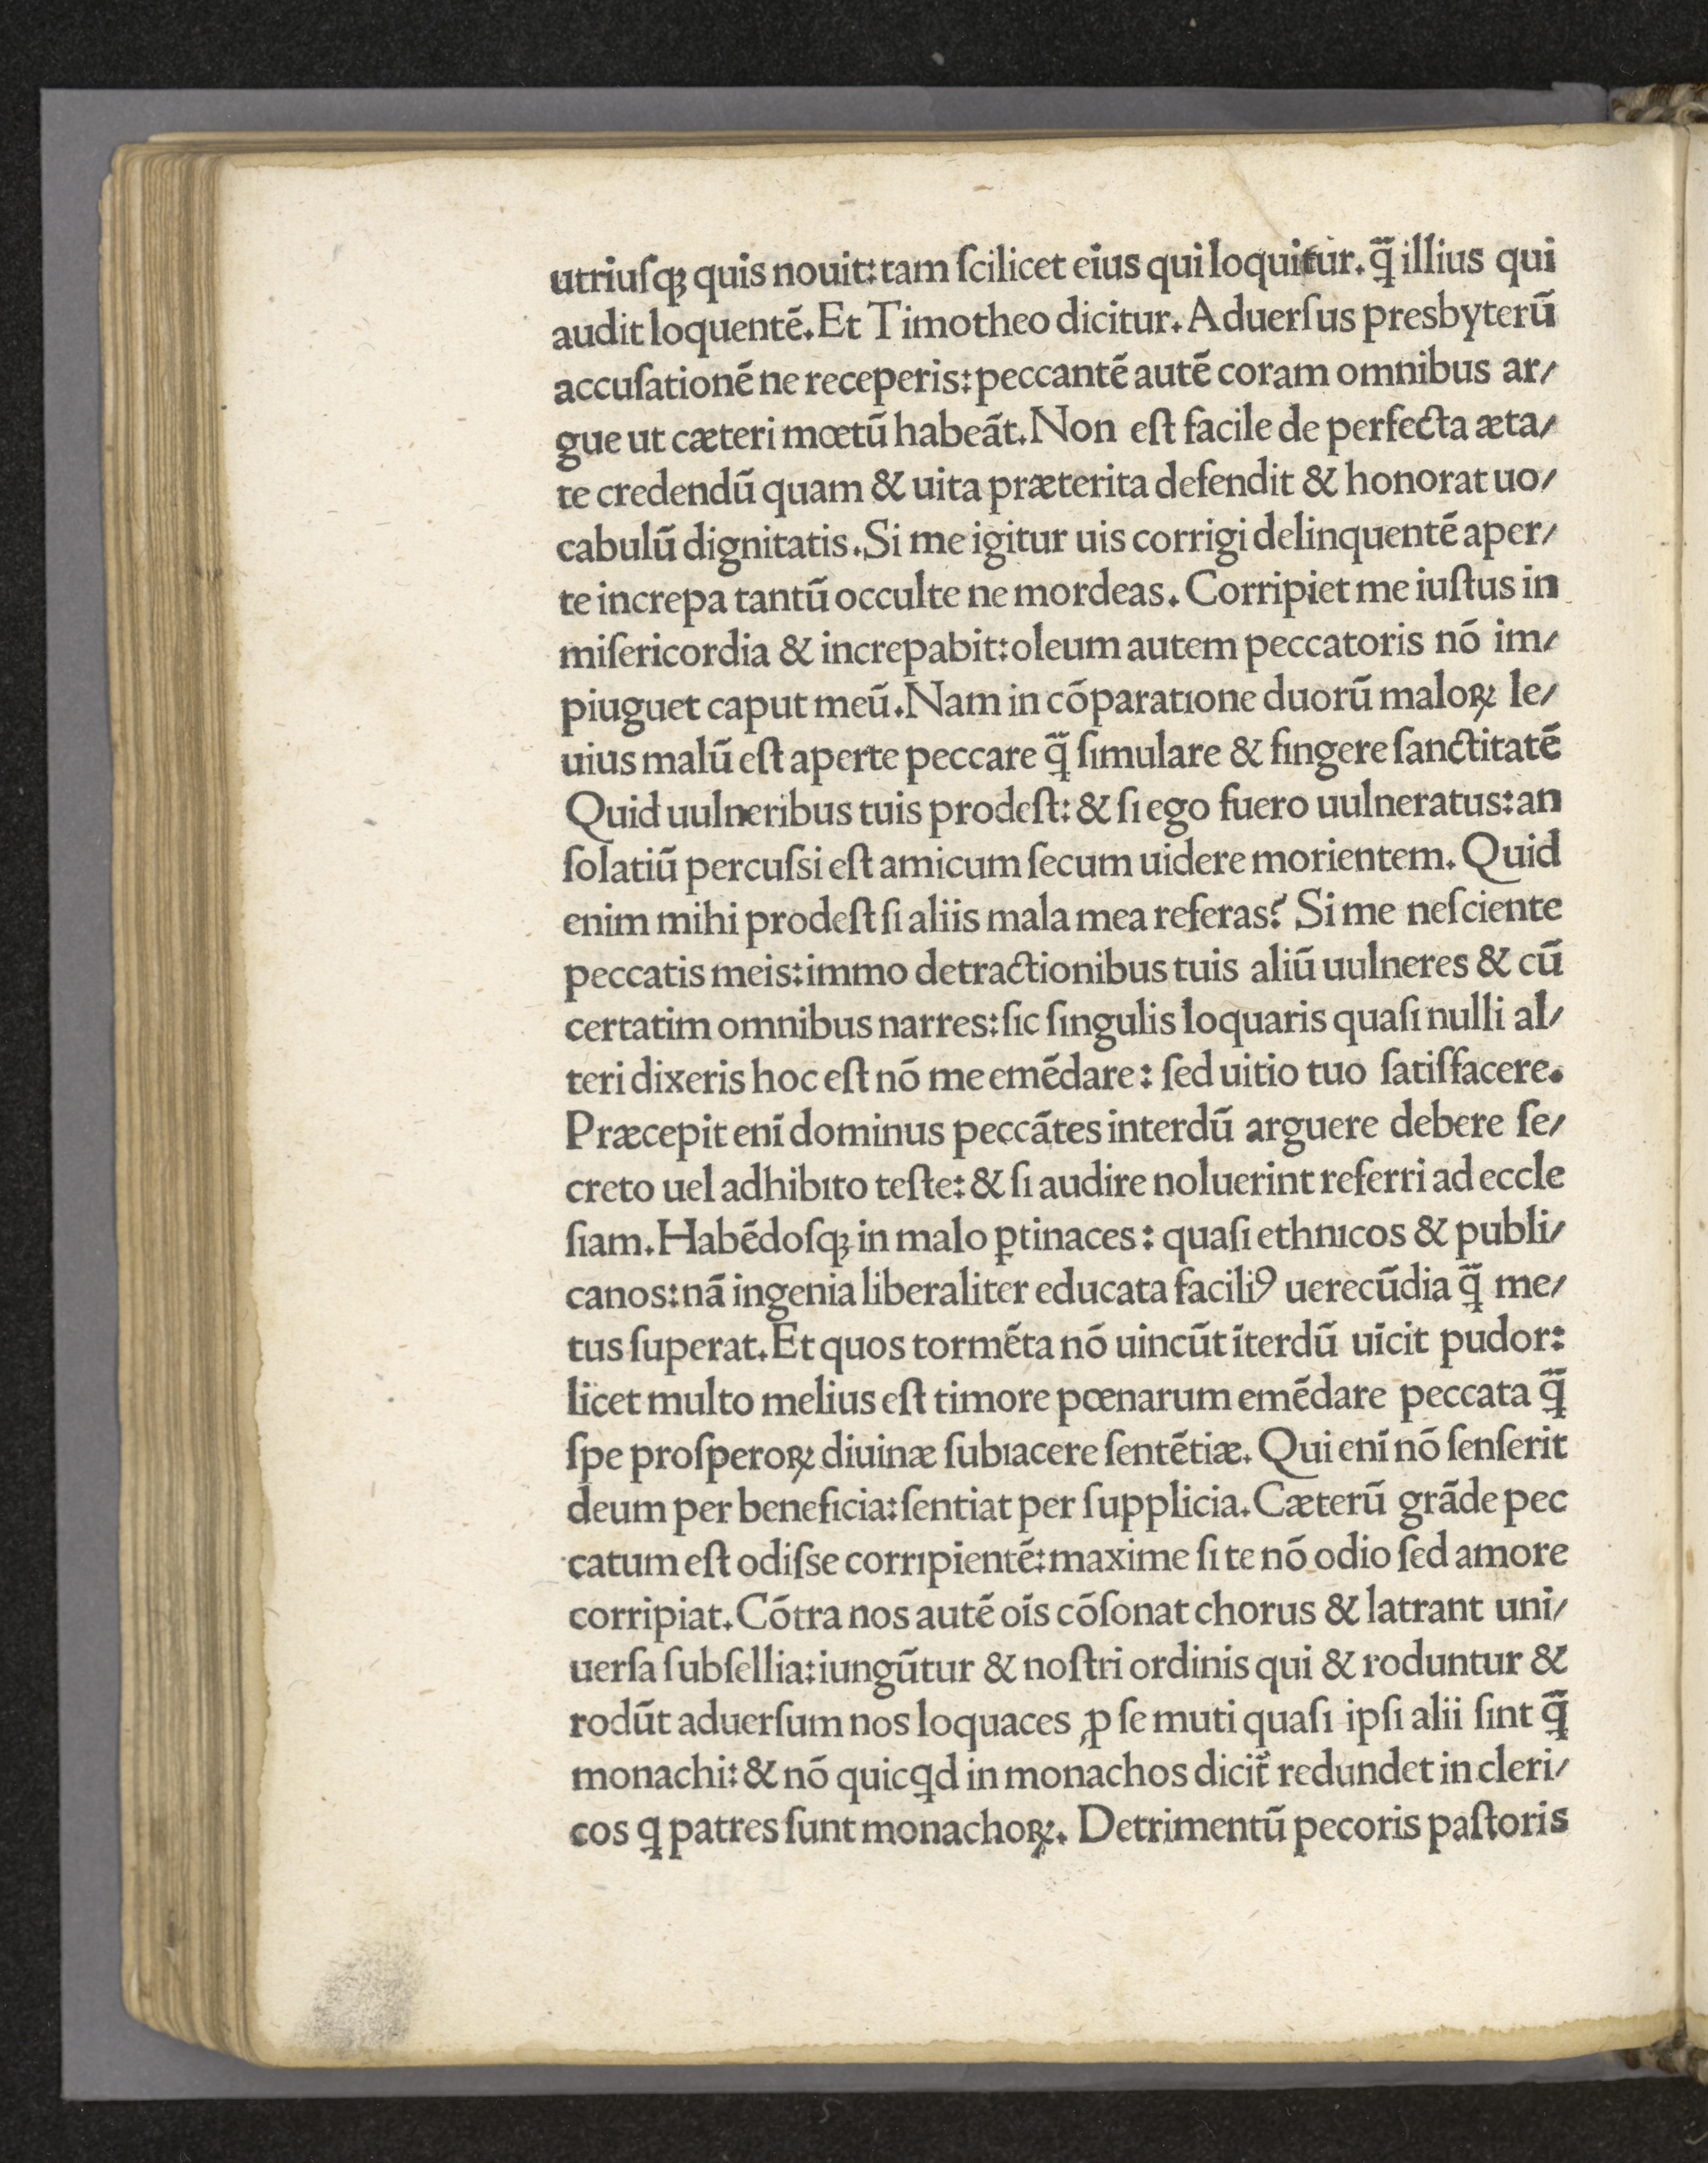 utriuſqꝫ quis nouit: tam ſcilicet eius qui loquitur. q̄ illius qui
audit loquentē. Et Timotheo dicitur. Aduerſus presbyterū
accuſationē ne receperis: peccantē autē coram omnibus ar/
gue ut cæteri mœtū habeāt. Non eſt facile de perfecta æta/
te credendū quam & uita præterita defendit & honorat uo/
cabulū dignitatis. Si me igitur uis corrigi delinquentē aper/
te increpa tantū occulte ne mordeas. Corripiet me iuſtus in
miſericordia & increpabit: oleum autem peccatoris nō im/
piuguet caput meū. Nam in cōparatione duorū maloꝝ le/
uius malū eſt aperte peccare q̄ ſimulare & fingere ſanctitatē
Quid uulneribus tuis prodeſt: & ſi ego fuero uulneratus: an
ſolatiū percuſsi eſt amicum ſecum uidere morientem. Quid
enim mihi prodeſt ſi aliis mala mea referas? Si me neſciente
peccatis meis: immo detractionibus tuis aliū uulneres & cū
certatim omnibus narres: ſic ſingulis loquaris quaſi nulli al/
teri dixeris hoc eſt nō me emēdare: ſed uitio tuo ſatiſfacere.
Præcepit enī dominus peccātes interdū arguere debere ſe/
creto uel adhibito teſte: & ſi audire noluerint referri ad eccle
ſiam. Habēdoſqꝫ in malo ꝑtinaces: quaſi ethnicos & publi/
canos: nā ingenia liberaliter educata faciliꝯ uerecūdia q̄ me/
tus ſuperat. Et quos tormēta nō uincūt īterdū uīcit pudor:
licet multo melius eſt timore pœnarum emēdare peccata q̄
ſpe proſperoꝝ diuinæ ſubiacere ſentētiæ. Qui enī nō ſenſerit
deum per beneficia: ſentiat per ſupplicia. Cæterū grāde pec
catum eſt odiſse corripientē: maxime ſi te nō odio ſed amore
corripiat. Cōtra nos autē oīs cōſonat chorus & latrant uni/
uerſa ſubſellia: iungūtur & noſtri ordinis qui & roduntur &
rodūt aduerſum nos loquaces ꝓ ſe muti quaſi ipſi alii ſint q̄
monachi: & nō quicꝗd in monachos dicit̄ redundet in cleri/
cos ꝗ patres ſunt monachoꝝ. Detrimentū pecoris paſtoris